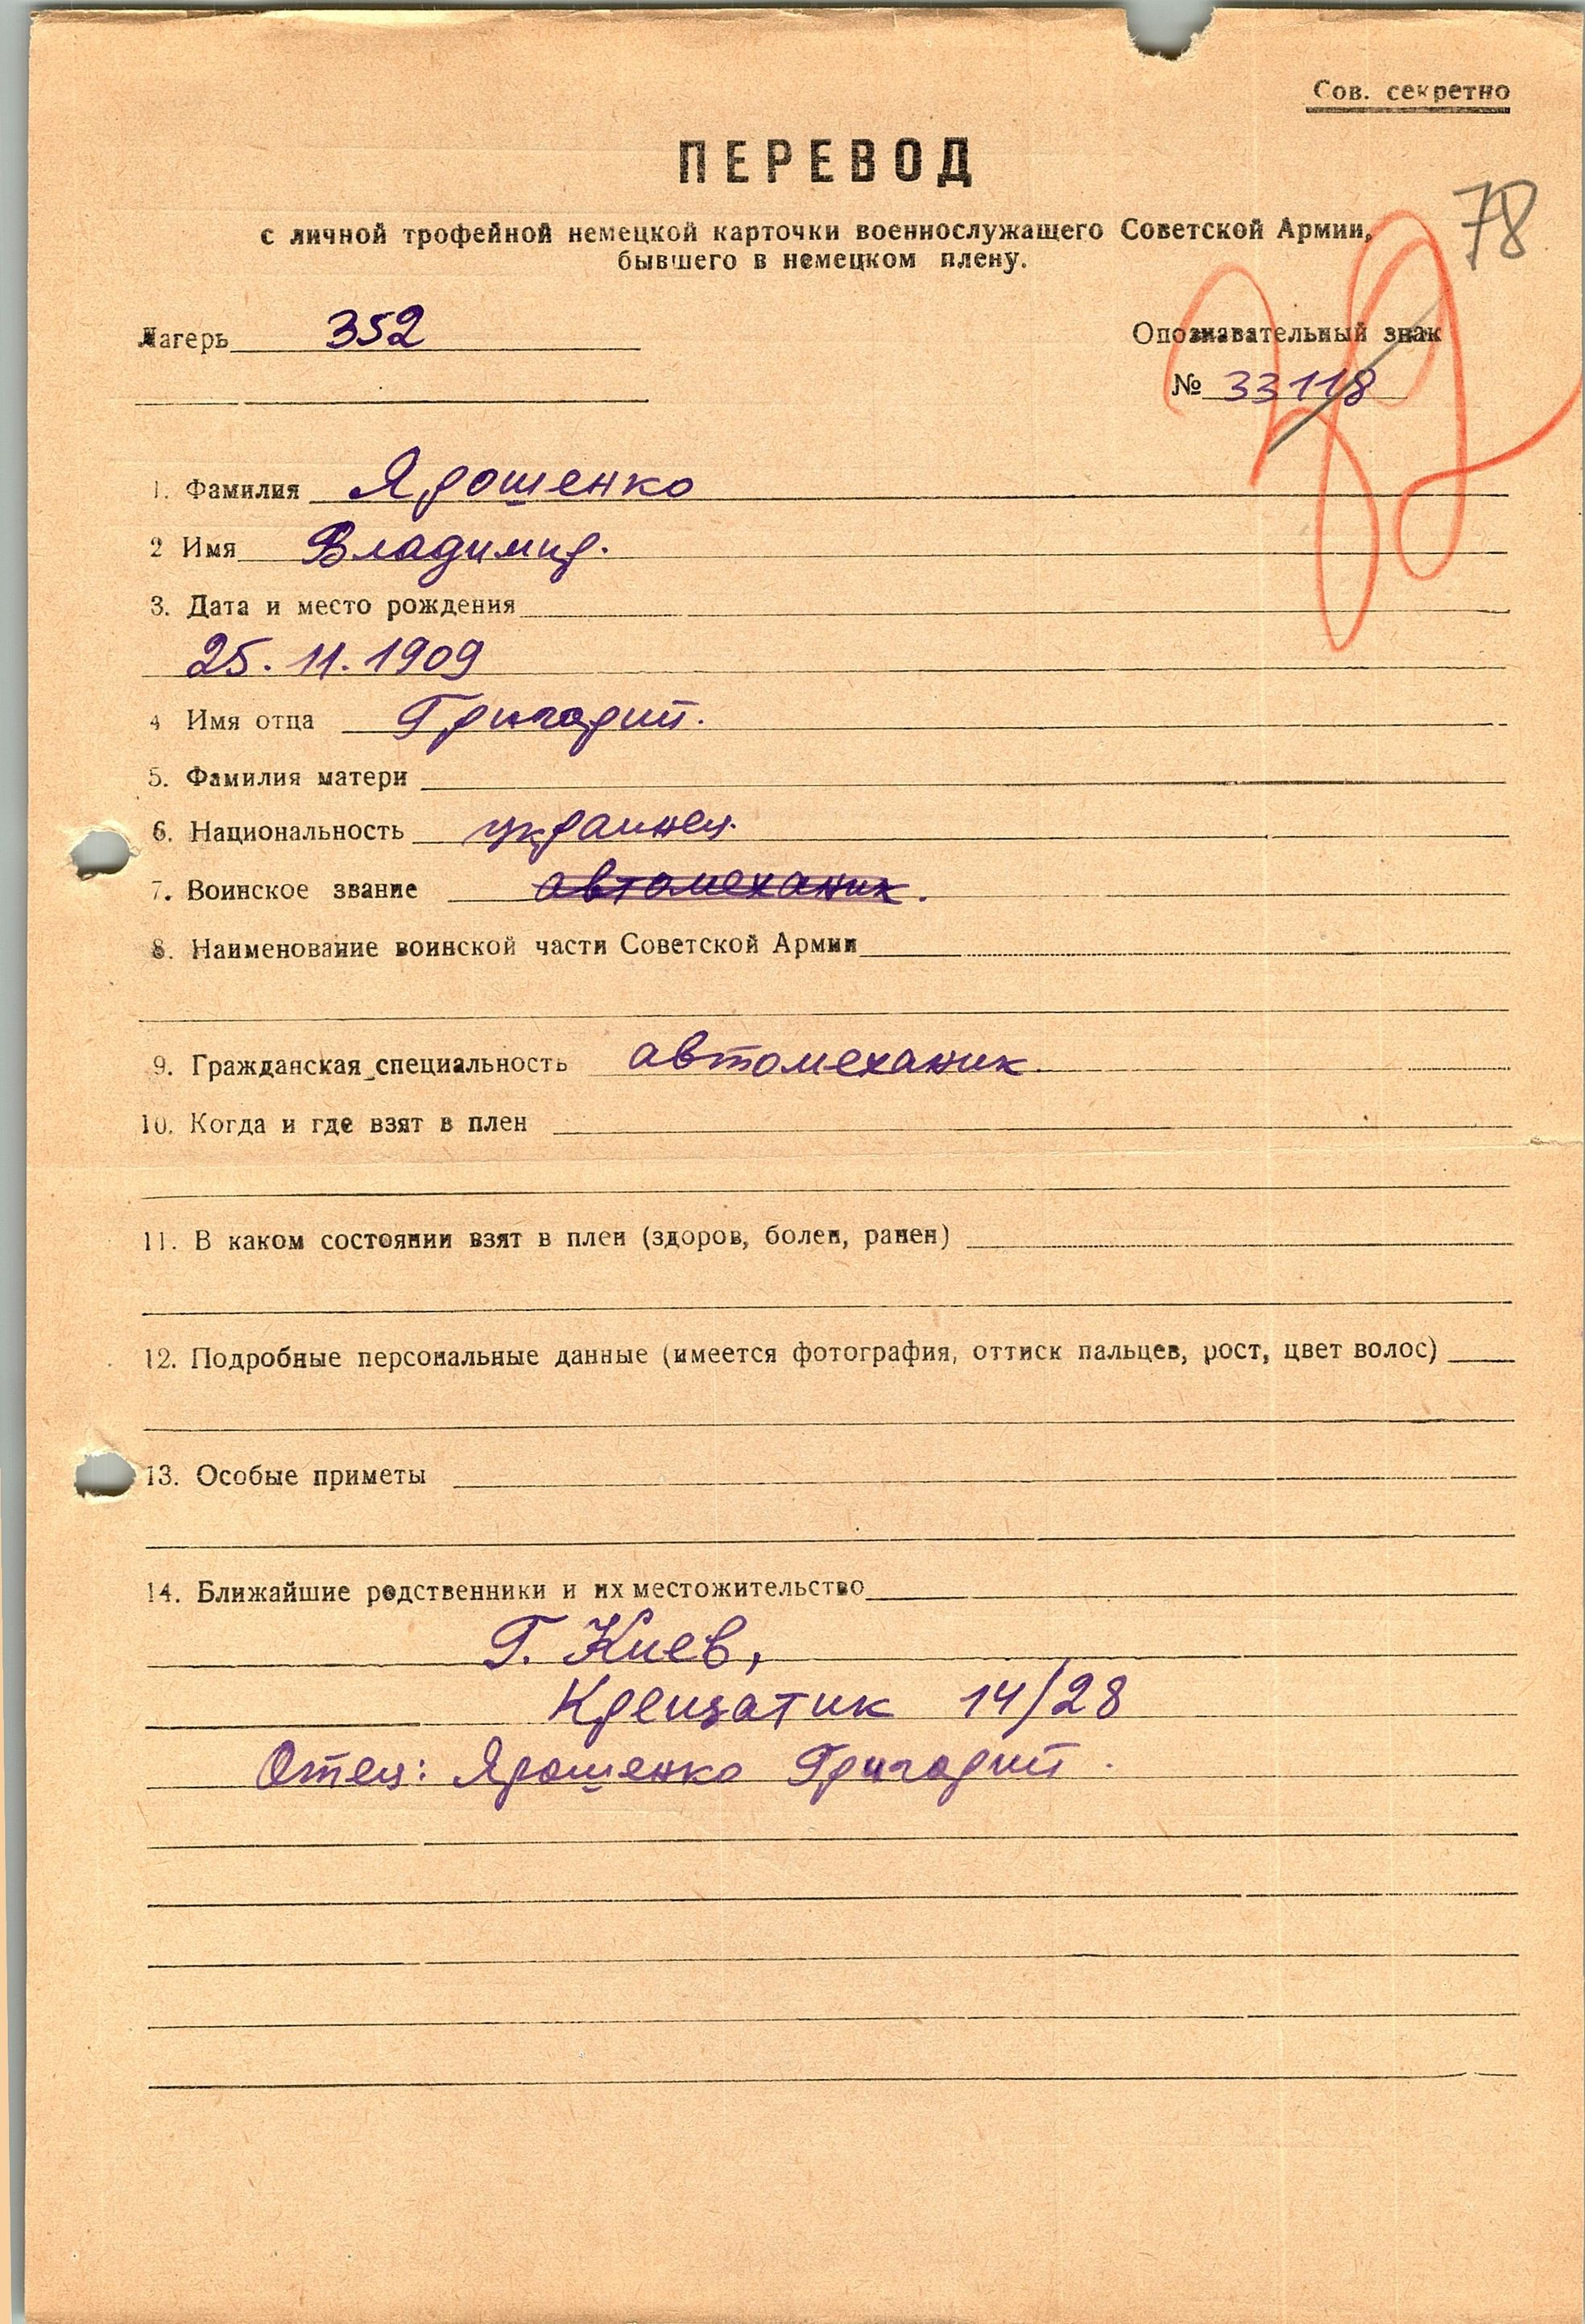 Сов. секретно
ПЕРЕВОД
78
с личной трофейной немецкой карточки военнослужащего Советской Армии,
бывшего в немецком плену.
Лагерь 352
Опознавательный знак
№ 33118
1. Фамилия Ярошенко
2 Имя Владимир.
3. Дата и место рождения
25.11.1909
4 Имя отца Григорий.
5. Фамилия матери
6. Национальность украинец.
7. Воинское звание автомеханик.
8. Наименование воинской части Советской Армии
9. Гражданская специальность автомеханик.
10. Когда и где взят в плен
11. В каком состоянии взят в плен (здоров, болен, ранен)
12. Подробные персональные данные (имеется фотография, оттиск пальцев, рост, цвет волос)
13. Особые приметы
14. Ближайшие родственники и их местожительство
Г. Киев,
Крещатик 14/28
Отец: Ярошенко Григорий.